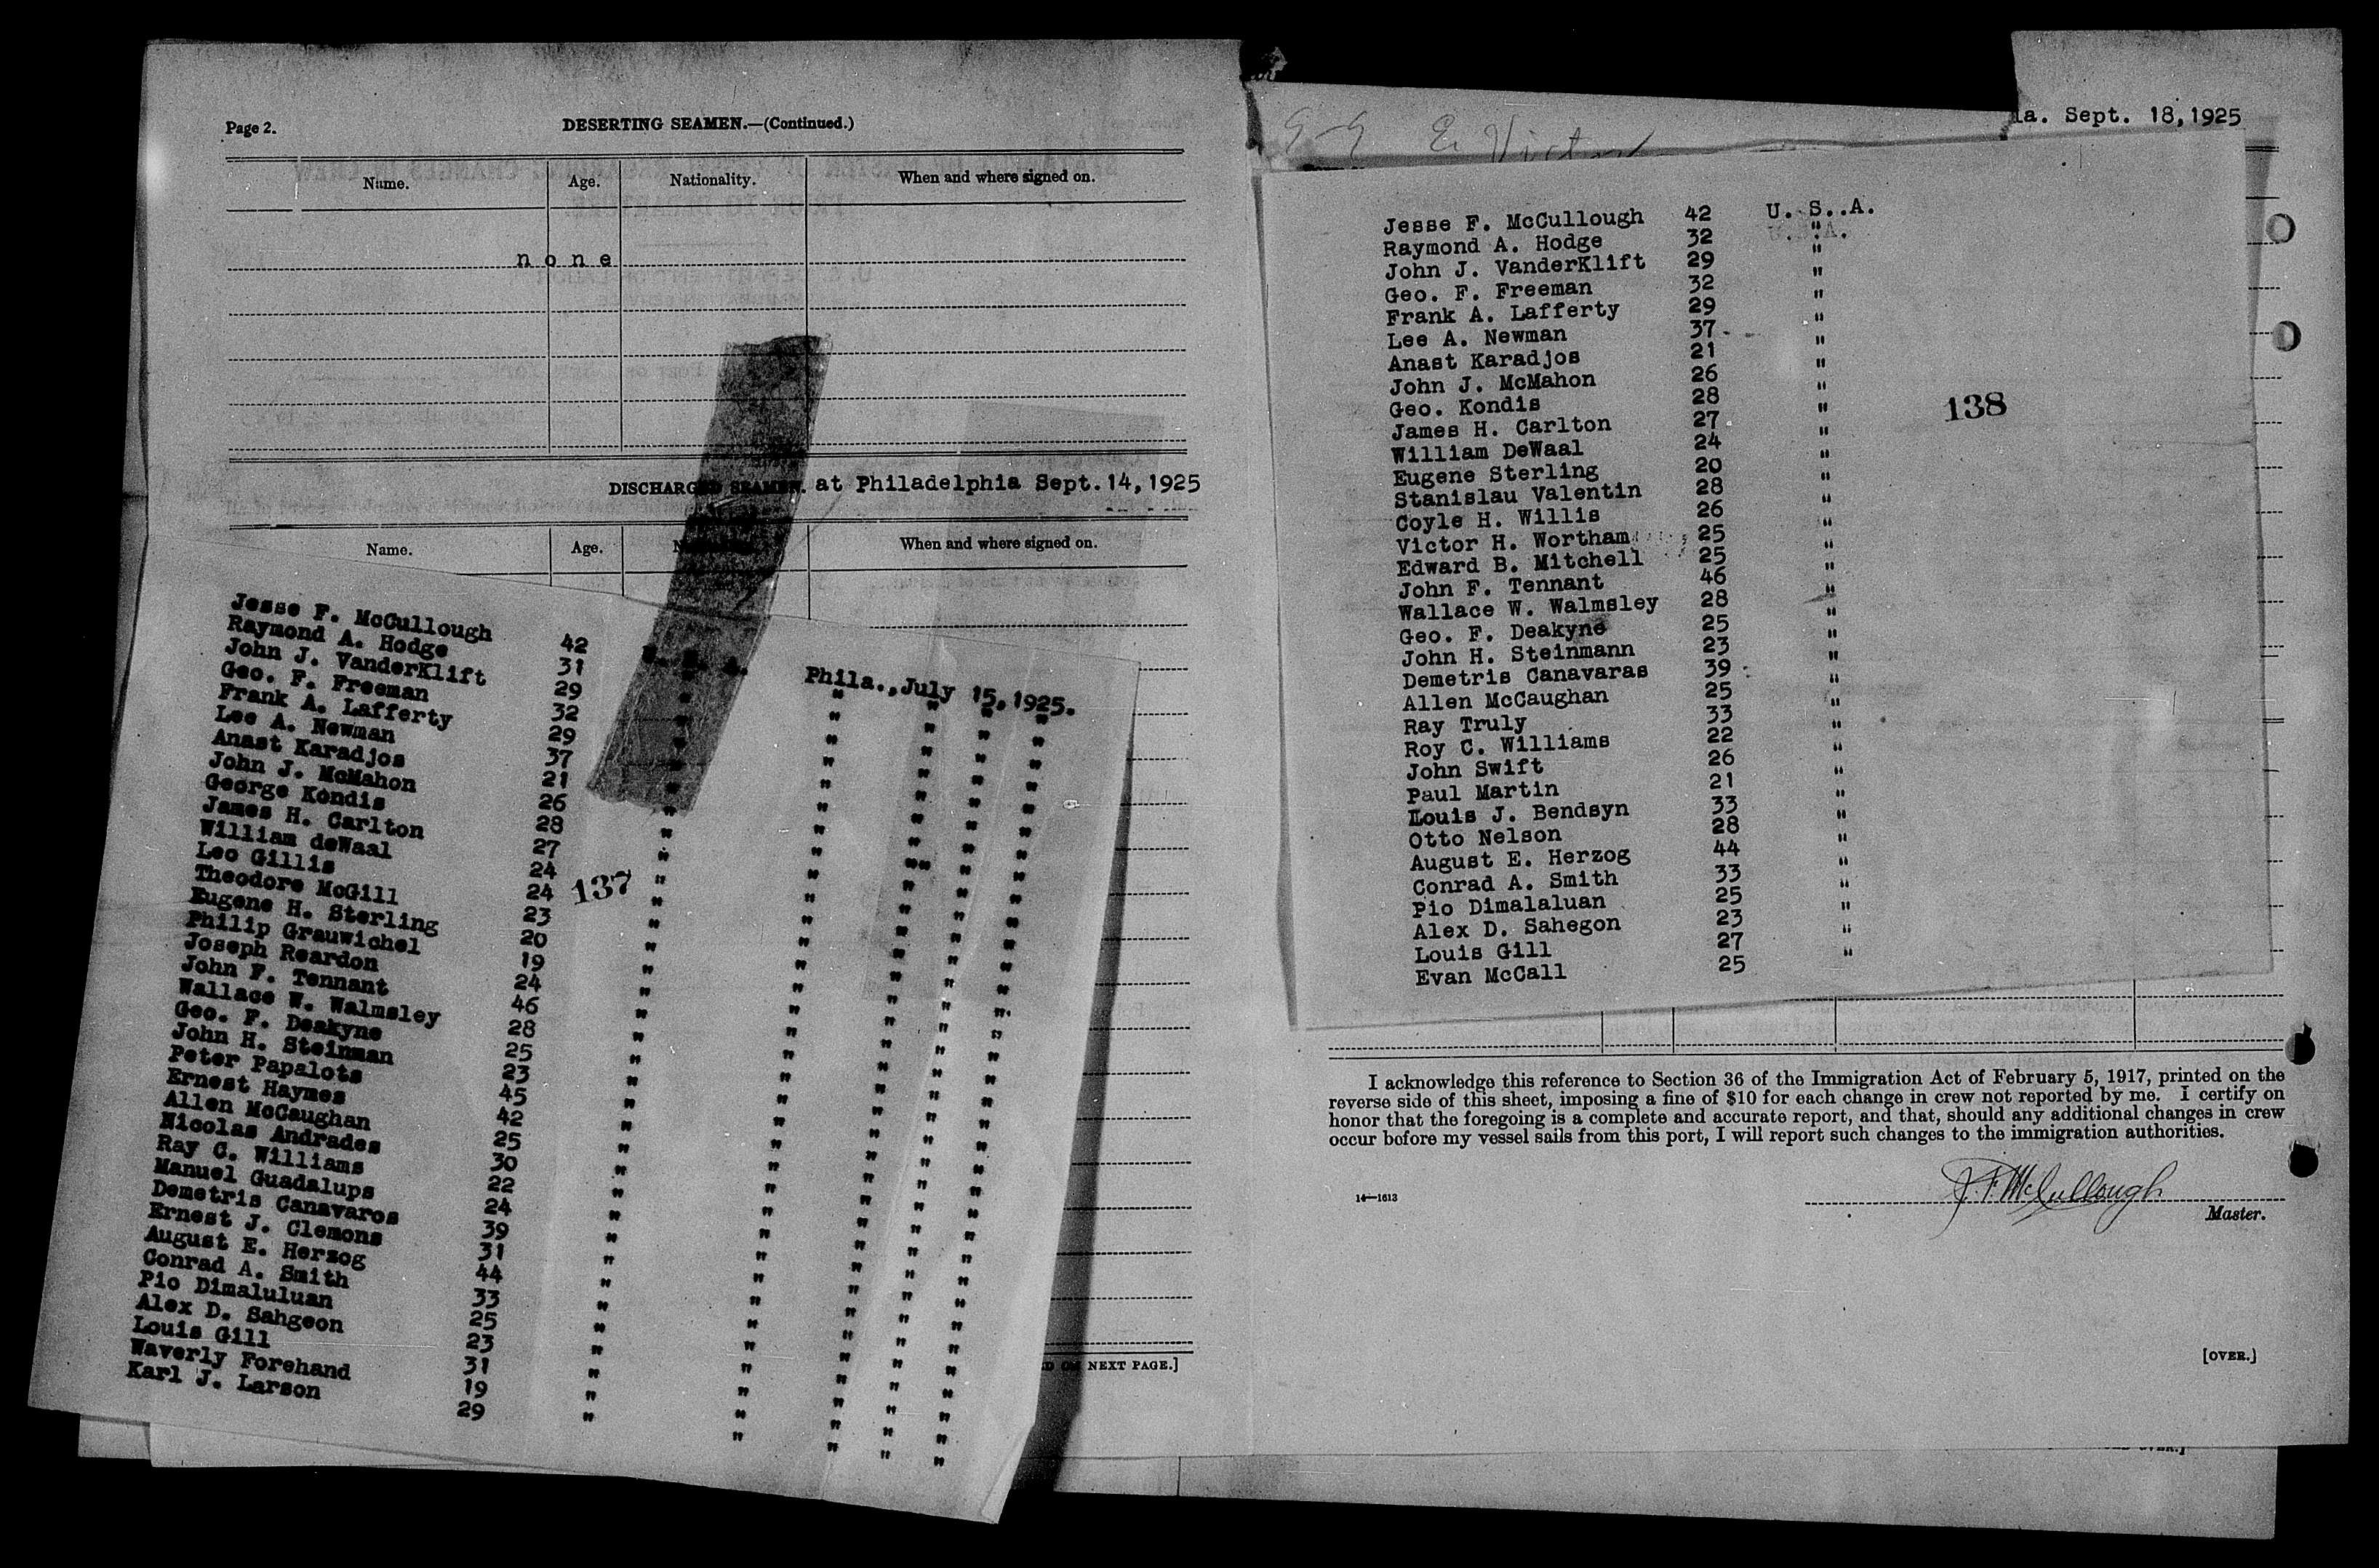 Page 2.
DESERTING SEAMEN.—(Continued.)
Name. Age. Nationality. When and where signed on.
none
DISCHARGED SEAMEN. at Philadelphia Sept. 14, 1925
Name. Age. When and where signed on.
Jesse F. McCullough 42 U. S. A. Phila., July 15, 1925.
Raymond A. Hodge 31 " " " " "
John J. VanderKlift 29 " " " " "
Geo. F. Freeman 32 " " " " "
Frank A. Lafferty 29 " " " " "
Lee A. Newman 37 " " " " "
Anast Karadjos 21 " " " " "
John J. McMahon 26 " " " " "
George Kondis 28 " " " " "
James H. Carlton 27 " " " " "
William deWaal 24 " " " " "
Leo Gillis 24 " " " " "
137
Theodore McGill 23 " " " " "
Eugene H. Sterling 20 " " " " "
Philip Grauwichel 19 " " " " "
Joseph Reardon 24 " " " " "
John F. Tennant 46 " " " " "
Wallace W. Walmsley 28 " " " " "
Geo. F. Deakyne 25 " " " " "
John H. Steinman 23 " " " " "
Peter Papalots 45 " " " " "
Ernest Haymes 42 " " " " "
Allen McCaughan 25 " " " " "
Nicolas Andrades 30 " " " " "
Ray C. Williams 22 " " " " "
Manuel Guadalups 24 " " " " "
Demetris Canavaros 39 " " " " "
Ernest J. Clemons 31 " " " " "
August E. Herzog 44 " " " " "
Conrad A. Smith 33 " " " " "
Pio Dimaluluan 25 " " " " "
Alex D. Sahgeon 23 " " " " "
Louis Gill 31 " " " " "
Waverly Forehand 19 " " " " "
Karl J. Larson 29 " " " " "
NEXT PAGE.]
la. Sept. 18, 1925
Jesse F. McCullough 42 U. S. A.
Raymond A. Hodge 32 "
John J. VanderKlift 29 "
Geo. F. Freeman 32 "
Frank A. Lafferty 29 "
Lee A. Newman 37 "
Anast Karadjos 21 "
John J. McMahon 26 "
Geo. Kondis 28 "
138
James H. Carlton 27 "
William DeWaal 24 "
Eugene Sterling 20 "
Stanislau Valentin 28 "
Coyle H. Willis 26 "
Victor H. Wortham 25 "
Edward B. Mitchell 25 "
John F. Tennant 46 "
Wallace W. Walmsley 28 "
Geo. F. Deakyne 25 "
John H. Steinmann 23 "
Demetris Canavaras 39 "
Allen McCaughan 25 "
Ray Truly 33 "
Roy C. Williams 22 "
John Swift 26 "
Paul Martin 21 "
Louis J. Bendsyn 33 "
Otto Nelson 28 "
August E. Herzog 44 "
Conrad A. Smith 33 "
Pio Dimalaluan 25 "
Alex D. Sahegon 23 "
Louis Gill 27 "
Evan McCall 25 "
I acknowledge this reference to Section 36 of the Immigration Act of February 5, 1917, printed on the
reverse side of this sheet, imposing a fine of $10 for each change in crew not reported by me. I certify on
honor that the foregoing is a complete and accurate report, and that, should any additional changes in crew
occur before my vessel sails from this port, I will report such changes to the immigration authorities.
14—1613
J. F. McCullough
Master.
[OVER.]